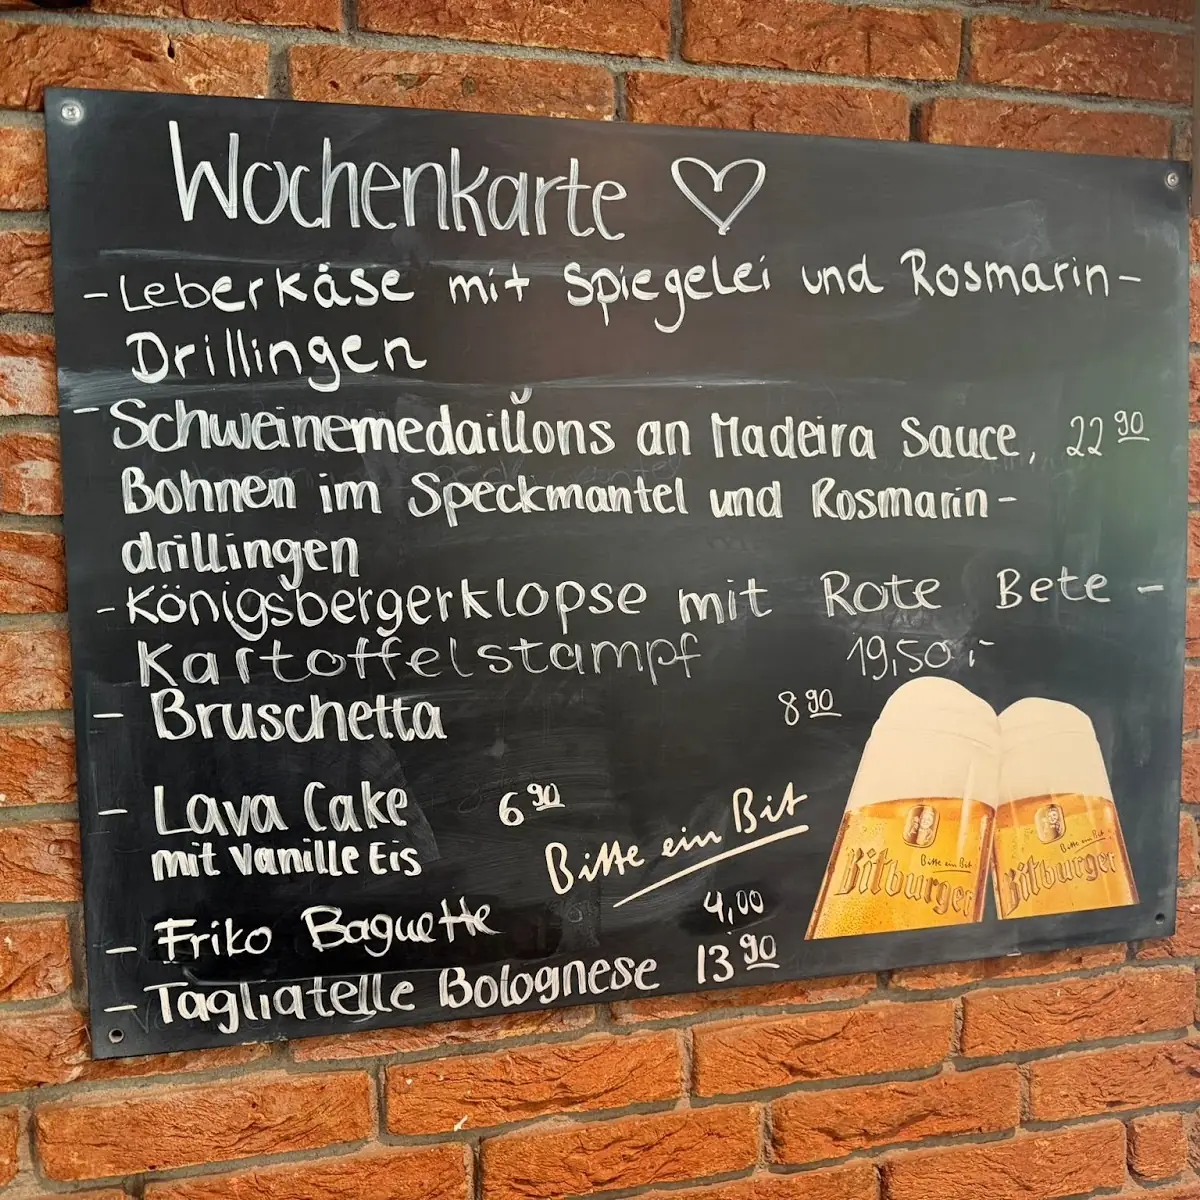 Wochenkarte ♡
- Leberkäse mit Spiegelei und Rosmarin-
Drillingen
- Schweinemedaillons an Madeira Sauce, 22 90
Bohnen im Speckmantel und Rosmarin-
drillingen
- Königsbergerklopse mit Rote Bete -
Kartoffelstampf 19,50,-
- Bruschetta 8 90
- Lava Cake 6 90
mit Vanille Eis
Bitte ein Bit
Bitte ein Bit
Bitburger
Bitte ein Bit
Bitburger
- Friko Baguette 4,00
- Tagliatelle Bolognese 13 90